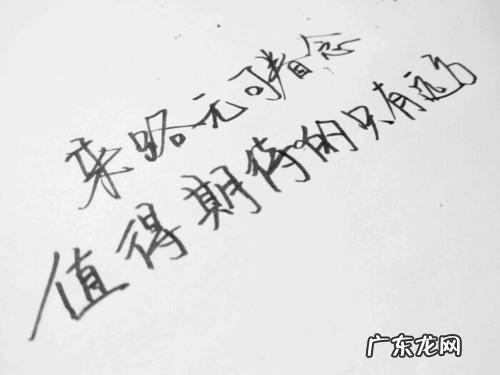 来路无可眷念
值得期待的只有远方
广东龙网